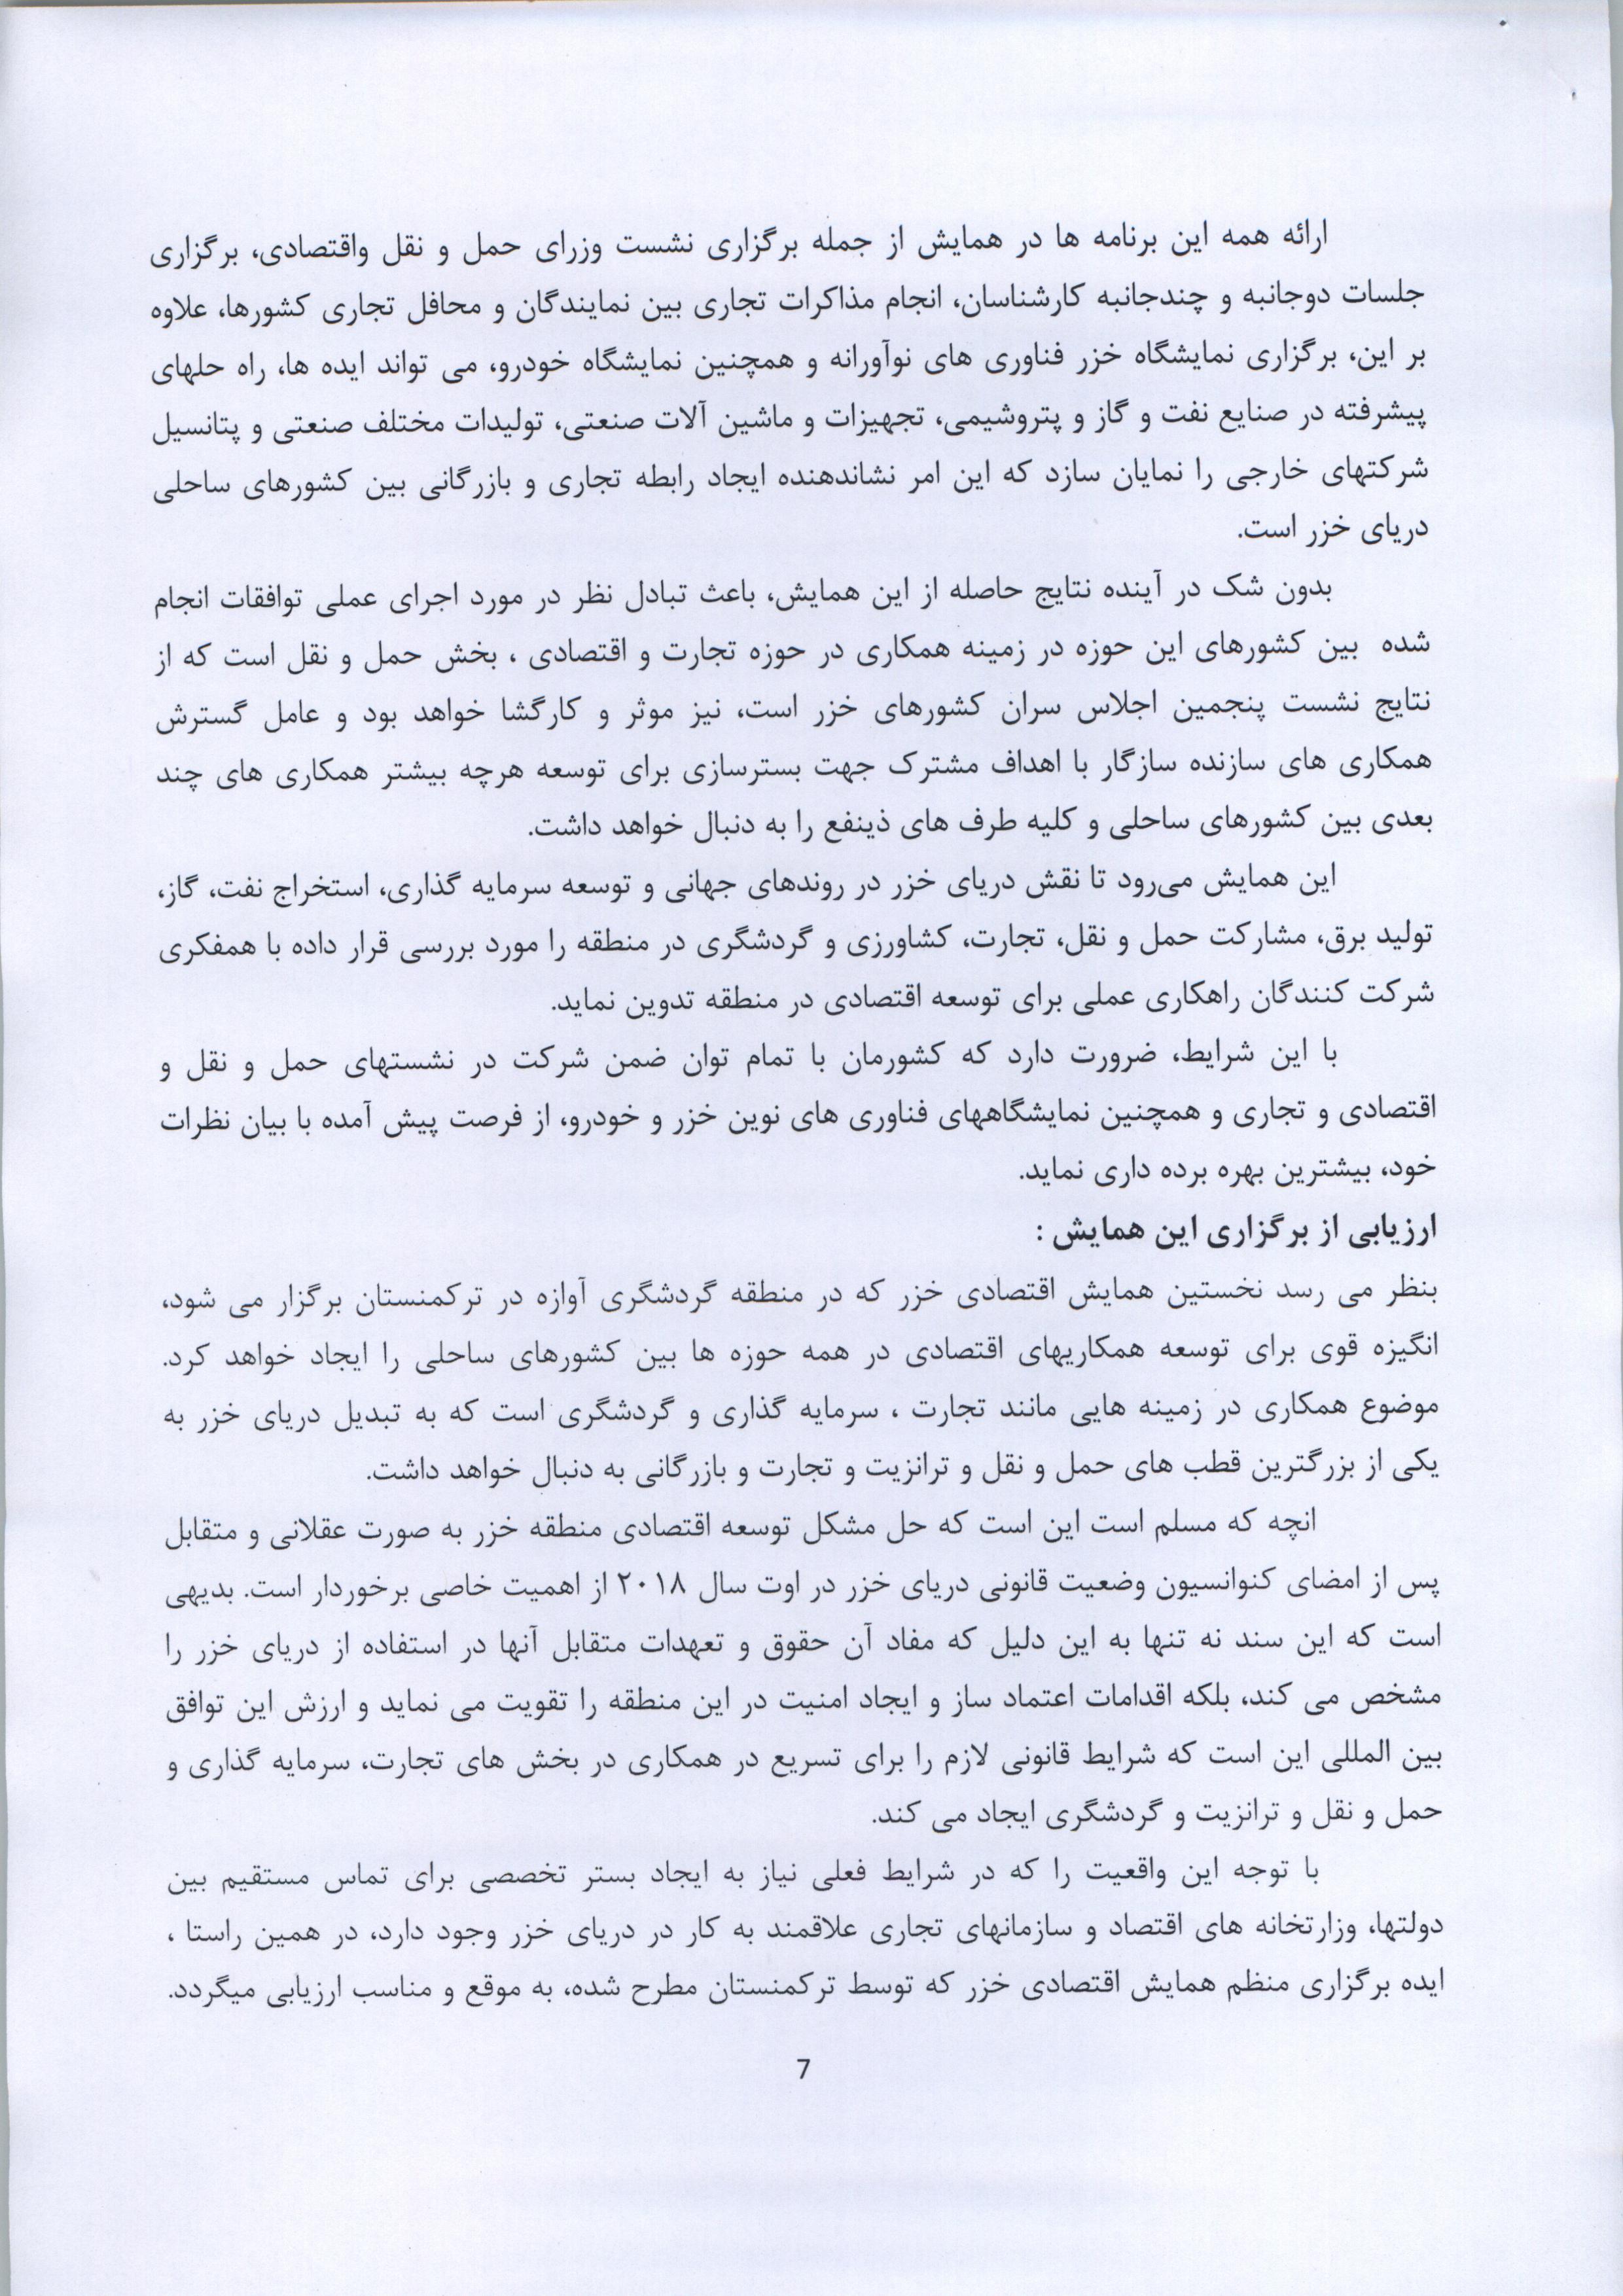 ارائه همه این برنامه ها در همایش از جمله برگزاری نشست وزرای حمل و نقل واقتصادی، برگزاری
جلسات دوجانبه و چندجانبه کارشناسان، انجام مذاکرات تجاری بین نمایندگان و محافل تجاری کشورها، علاوه
بر این، برگزاری نمایشگاه خزر فناوری های نوآورانه و همچنین نمایشگاه خودرو، می تواند ایده ها، راه حلهای
پیشرفته در صنایع نفت و گاز و پتروشیمی، تجهیزات و ماشین آلات صنعتی، تولیدات مختلف صنعتی و پتانسیل
شرکتهای خارجی را نمایان سازد که این امر نشاندهنده ایجاد رابطه تجاری و بازرگانی بین کشورهای ساحلی
دریای خزر است.
بدون شک در آینده نتایج حاصله از این همایش، باعث تبادل نظر در مورد اجرای عملی توافقات انجام
شده بین کشورهای این حوزه در زمینه همکاری در حوزه تجارت و اقتصادی ، بخش حمل و نقل است که از
نتایج نشست پنجمین اجلاس سران کشورهای خزر است، نیز موثر و کارگشا خواهد بود و عامل گسترش
همکاری های سازنده سازگار با اهداف مشترک جهت بسترسازی برای توسعه هرچه بیشتر همکاری های چند
بعدی بین کشورهای ساحلی و کلیه طرف های ذینفع را به دنبال خواهد داشت.
این همایش می‌رود تا نقش دریای خزر در روندهای جهانی و توسعه سرمایه گذاری، استخراج نفت، گاز،
تولید برق، مشارکت حمل و نقل، تجارت، کشاورزی و گردشگری در منطقه را مورد بررسی قرار داده با همفکری
شرکت کنندگان راهکاری عملی برای توسعه اقتصادی در منطقه تدوین نماید.
با این شرایط، ضرورت دارد که کشورمان با تمام توان ضمن شرکت در نشستهای حمل و نقل و
اقتصادی و تجاری و همچنین نمایشگاههای فناوری های نوین خزر و خودرو، از فرصت پیش آمده با بیان نظرات
خود، بیشترین بهره برده داری نماید.
ارزیابی از برگزاری این همایش :
بنظر می رسد نخستین همایش اقتصادی خزر که در منطقه گردشگری آوازه در ترکمنستان برگزار می شود،
انگیزه قوی برای توسعه همکاریهای اقتصادی در همه حوزه ها بین کشورهای ساحلی را ایجاد خواهد کرد.
موضوع همکاری در زمینه هایی مانند تجارت ، سرمایه گذاری و گردشگری است که به تبدیل دریای خزر به
یکی از بزرگترین قطب های حمل و نقل و ترانزیت و تجارت و بازرگانی به دنبال خواهد داشت.
انچه که مسلم است این است که حل مشکل توسعه اقتصادی منطقه خزر به صورت عقلانی و متقابل
پس از امضای کنوانسیون وضعیت قانونی دریای خزر در اوت سال ۲۰۱۸ از اهمیت خاصی برخوردار است. بدیهی
است که این سند نه تنها به این دلیل که مفاد آن حقوق و تعهدات متقابل آنها در استفاده از دریای خزر را
مشخص می کند، بلکه اقدامات اعتماد ساز و ایجاد امنیت در این منطقه را تقویت می نماید و ارزش این توافق
بین المللی این است که شرایط قانونی لازم را برای تسریع در همکاری در بخش های تجارت، سرمایه گذاری و
حمل و نقل و ترانزیت و گردشگری ایجاد می کند.
با توجه این واقعیت را که در شرایط فعلی نیاز به ایجاد بستر تخصصی برای تماس مستقیم بین
دولتها، وزارتخانه های اقتصاد و سازمانهای تجاری علاقمند به کار در دریای خزر وجود دارد، در همین راستا ،
ایده برگزاری منظم همایش اقتصادی خزر که توسط ترکمنستان مطرح شده، به موقع و مناسب ارزیابی میگردد.
7